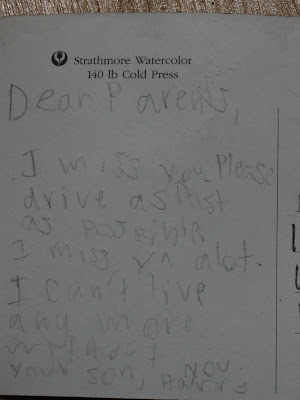 Strathmore Watercolor
140 lb Cold Press
Dear Parents,
I miss you. Please
drive as fast
as possible.
I miss yu alot.
I can't live
any more
without
you
your son, Harry